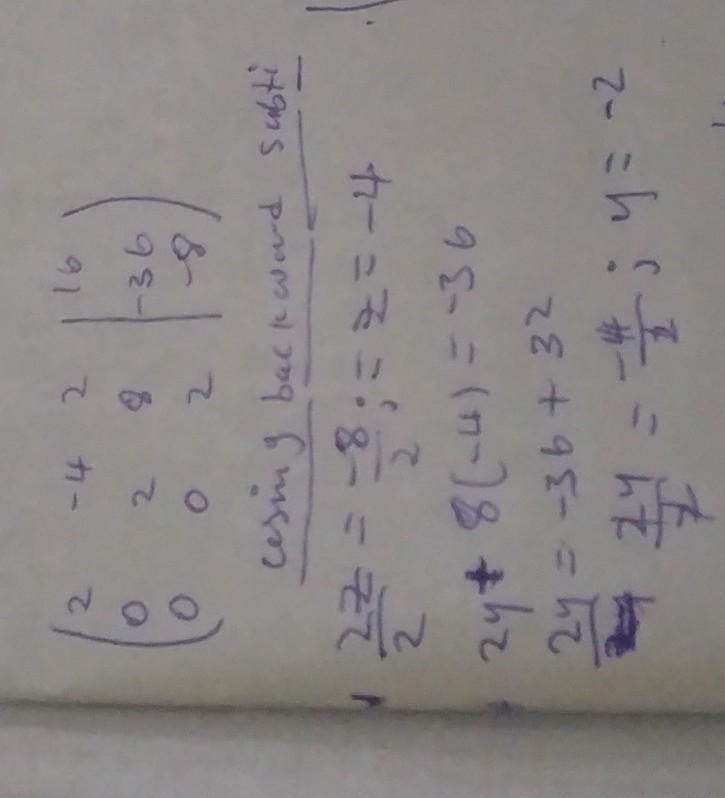 2 -4 2 | 16
0 2 8 | -36
0 0 2 | -8
using backward subti
2z/2 = -8/2 ; = z = -4
2y + 8(-4) = -36
2y = -36 + 32
2y/2 = -4/2 ; y = -2